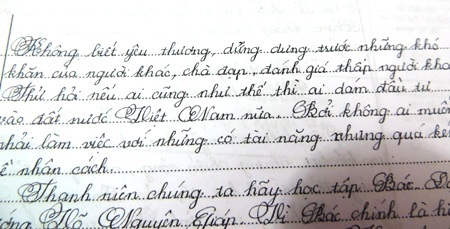 Không biết yêu thương, dửng dưng trước những khó
khăn của người khác, chà đạp, đánh giá thấp người khá
Thử hỏi nếu ai cũng như thế thì ai dám đầu tư
vào đất nước Việt Nam nữa. Bởi không ai muốn
phải làm việc với những có tài năng nhưng quá ké
ề nhân cách.
Thanh niên chúng ta hãy học tập Bác
Võ Nguyên Giáp. Vì Bác chính là hì